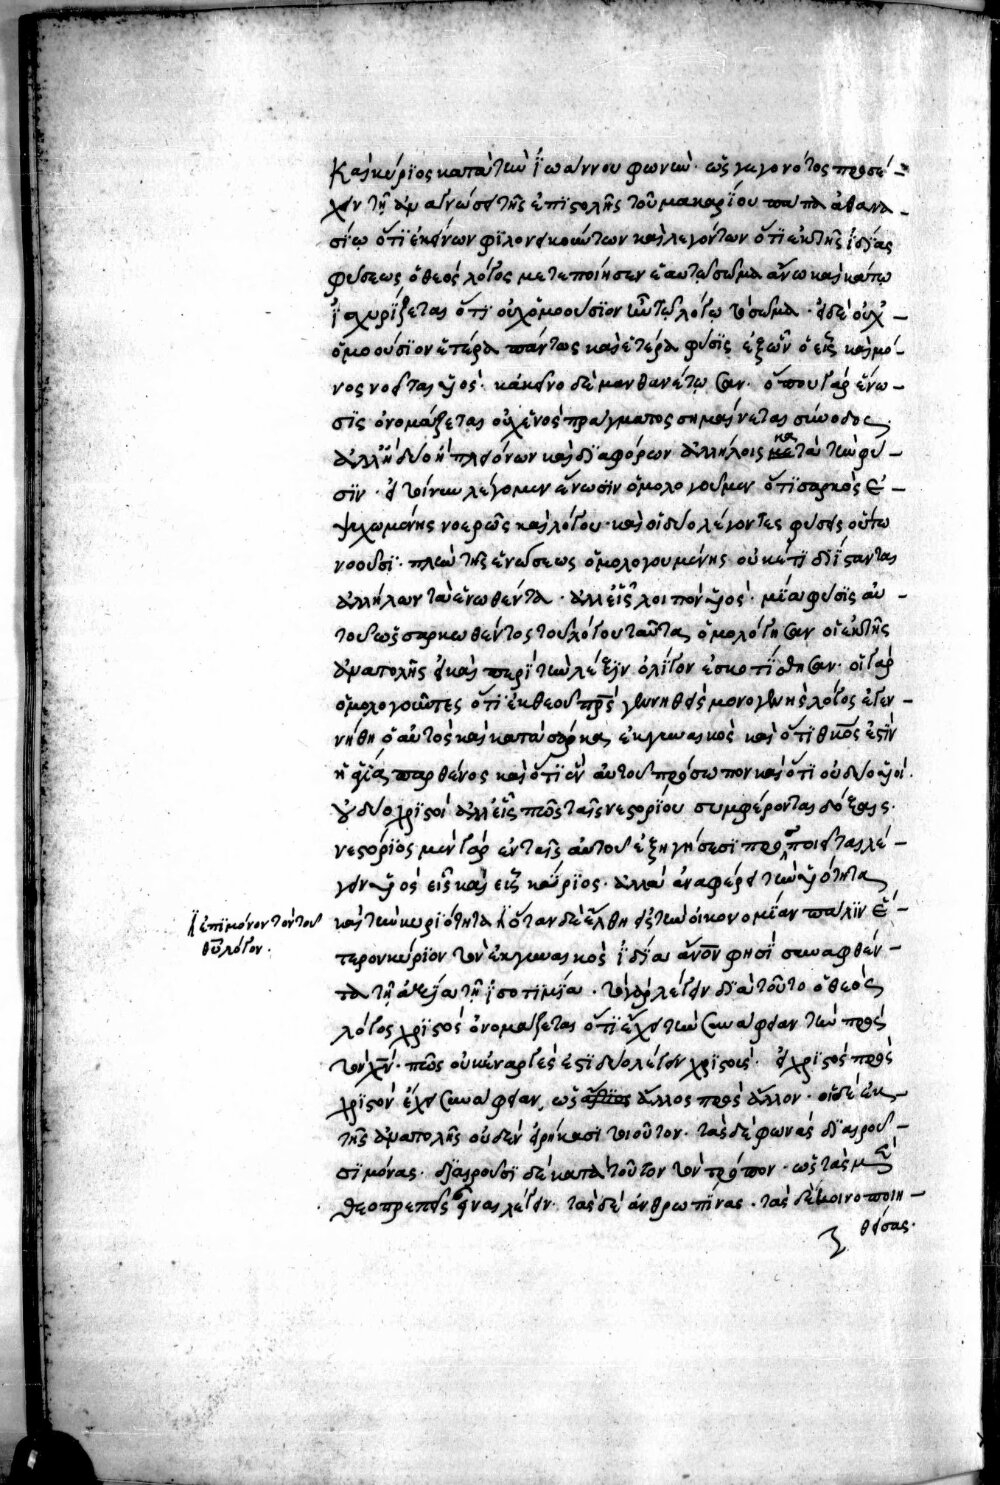 Καὶ κύριος κατὰ τὴν ἰωάννου φωνήν. ὡς γεγονότος προσέ-
χειν τῇ ἀναγνώσει τῆς ἐπιστολῆς τοῦ μακαρίου πάπα ἀθανα-
σίῳ ὅτι ἐκείνων φιλονεικούντων καὶ λεγόντων ὅτι ἐκ τῆς ἰδίας
φύσεως ὁ θεὸς λόγος μετεποίησεν ἑαυτῷ σῶμα ἄνω καὶ κάτω
ἰσχυρίζεται ὅτι οὐχ ὁμοούσιον ἦν τῷ λόγῳ τὸ σῶμα. εἰ δὲ οὐχ
ὁμοούσιον ἑτέρα πάντως καὶ ἑτέρα φύσις ἐξ ὧν ὁ εἷς καὶ μό-
νος νοεῖται υἱός. κἀκεῖνο δὲ μανθανέτωσαν. ὅπου γὰρ ἕνω-
σις ὀνομάζεται οὐχ ἑνὸς πράγματος σημαίνεται σύνοδος
ἀλλ' ἢ δύο ἢ πλειόνων καὶ διαφόρων ἀλλήλοις κατὰ τὴν φύ-
σιν. εἰ τοίνυν λέγομεν ἕνωσιν ὁμολογοῦμεν ὅτι σαρκὸς ἐ-
ψυχωμένης νοερῶς καὶ λόγου. καὶ οἱ δύο λέγοντες φύσεις οὕτω
νοοῦσι. πλὴν τῆς ἑνώσεως ὁμολογουμένης οὐκέτι διΐστανται
ἀλλήλων τὰ ἑνωθέντα. ἀλλ' εἷς λοιπὸν υἱός. μία φύσις αὐ-
τοῦ ὡς σαρκωθέντος τοῦ λόγου ταῦτα ὡμολόγησαν οἱ ἐκ τῆς
ἀνατολῆς εἰ καὶ περὶ τὴν λέξιν ὀλίγον ἐσκοτίσθησαν. οἱ γὰρ
ὁμολογοῦντες ὅτι ἐκ θεοῦ πρς γεννηθεὶς μονογενὴς λόγος ἐγεν-
νήθη ὁ αὐτὸς καὶ κατὰ σάρκα ἐκ γυναικὸς καὶ ὅτι θκος ἐστὶν
ἡ ἁγία παρθένος καὶ ὅτι ἓν αὐτοῦ πρόσωπον καὶ ὅτι οὐ δύο υἱοὶ.
οὐ δύο χριστοὶ ἀλλ' εἷς πῶς ταῖς νεστορίου συμφέρονται δόξαις.
νεστόριος μὲν γὰρ ἐν ταῖς αὐτοῦ ἐξηγήσεσι προσποιεῖται λέ-
γειν υἱὸς εἷς καὶ εἷς κύριος. ἀλλὰ ἀναφέρει τὴν υἱότητα
καὶ τὴν κυριότητα ὅταν δὲ ἔλθῃ εἰς τὴν οἰκονομίαν πάλιν ἕ-
ἐπὶ μόνον τὸν τοῦ
θῦ λόγον.
τερον κύριον τὸν ἐκ γυναικὸς ἰδίᾳ ἄνον φησὶ συναφθέν-
τα τῇ ἀξίᾳ τῇ ἰσοτιμίᾳ. τὸ γὰρ λέγειν διὰ τοῦτο ὁ θεὸς
λόγος χριστὸς ὀνομάζεται ὅτι ἔχει τὴν συνάφειαν τὴν πρὸς
τὸν χν. πῶς οὐκ ἐναργές ἐστι δύο λέγειν χριστοὺς. εἰ χριστὸς πρὸς
χριστὸν ἔχει συνάφειαν, ὡς ἄλλος πρὸς ἄλλον. οἱ δὲ ἐκ
τῆς ἀνατολῆς οὐδὲν εἰρήκασι τοιοῦτον. τὰς δὲ φωνὰς διαιροῦ-
σι μόνας. διαιροῦσι δὲ κατὰ τοῦτον τὸν τρόπον. ὡς τὰς μὲν
θεοπρεπεῖς εἶναι λέγειν. τὰς δὲ ἀνθρωπίνας. τὰς δὲ κοινοποιη-
θείσας.